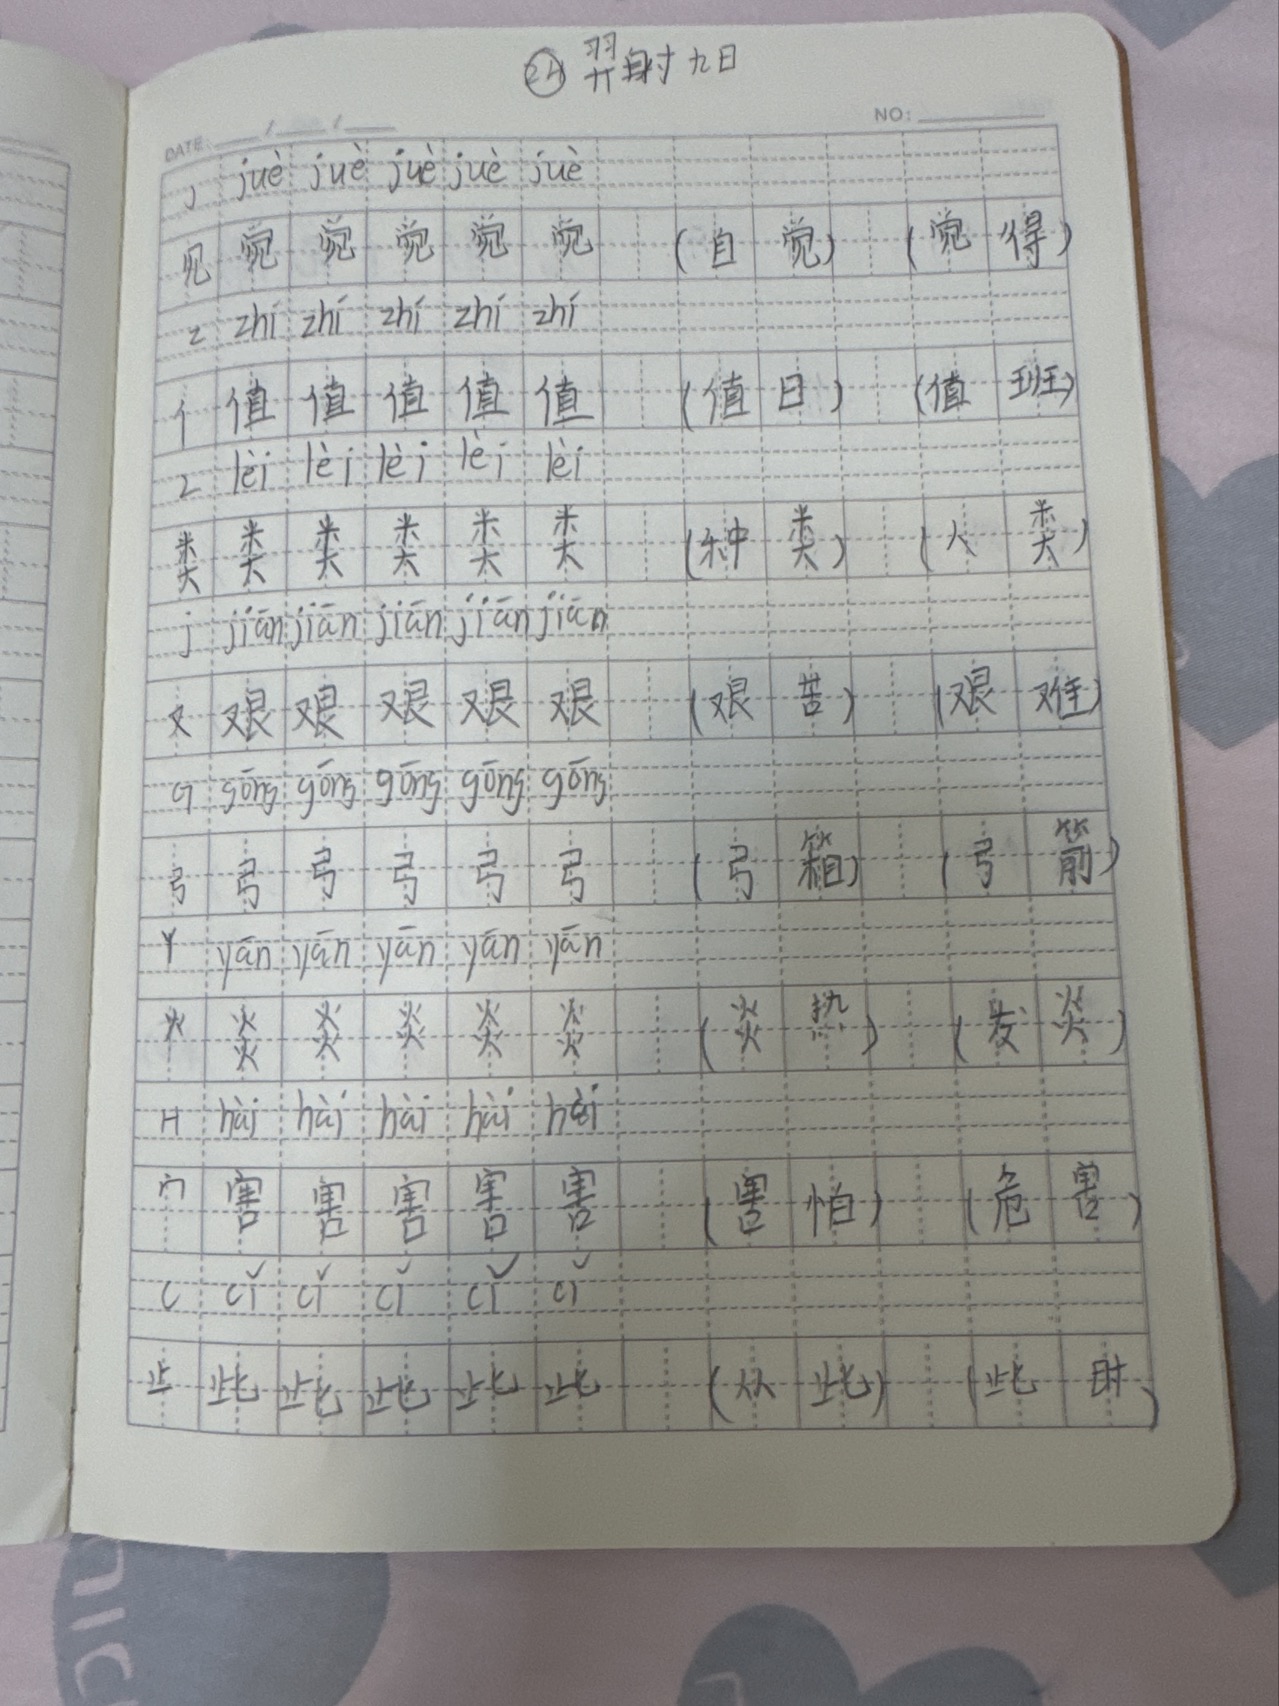 24 羿射九日
DATE: / / NO:
j juè juè juè juè juè
见 觉 觉 觉 觉 觉 (自觉) (觉得)
z zhí zhí zhí zhí zhí
亻 值 值 值 值 值 (值日) (值班)
L lèi lèi lèi lèi lèi
类 类 类 类 类 类 (种类) (人类)
j jiān jiān jiān jiān jiān
又 艰 艰 艰 艰 艰 (艰苦) (艰难)
G gōng gōng gōng gōng gōng
弓 弓 弓 弓 弓 弓 (弓箱) (弓箭)
Y yán yán yán yán yán
火 炎 炎 炎 炎 炎 (炎热) (发炎)
H hài hài hài hài hài
宀 害 害 害 害 害 (害怕) (危害)
C cǐ cǐ cǐ cǐ cǐ
止 此 此 此 此 此 (从此) (此时)